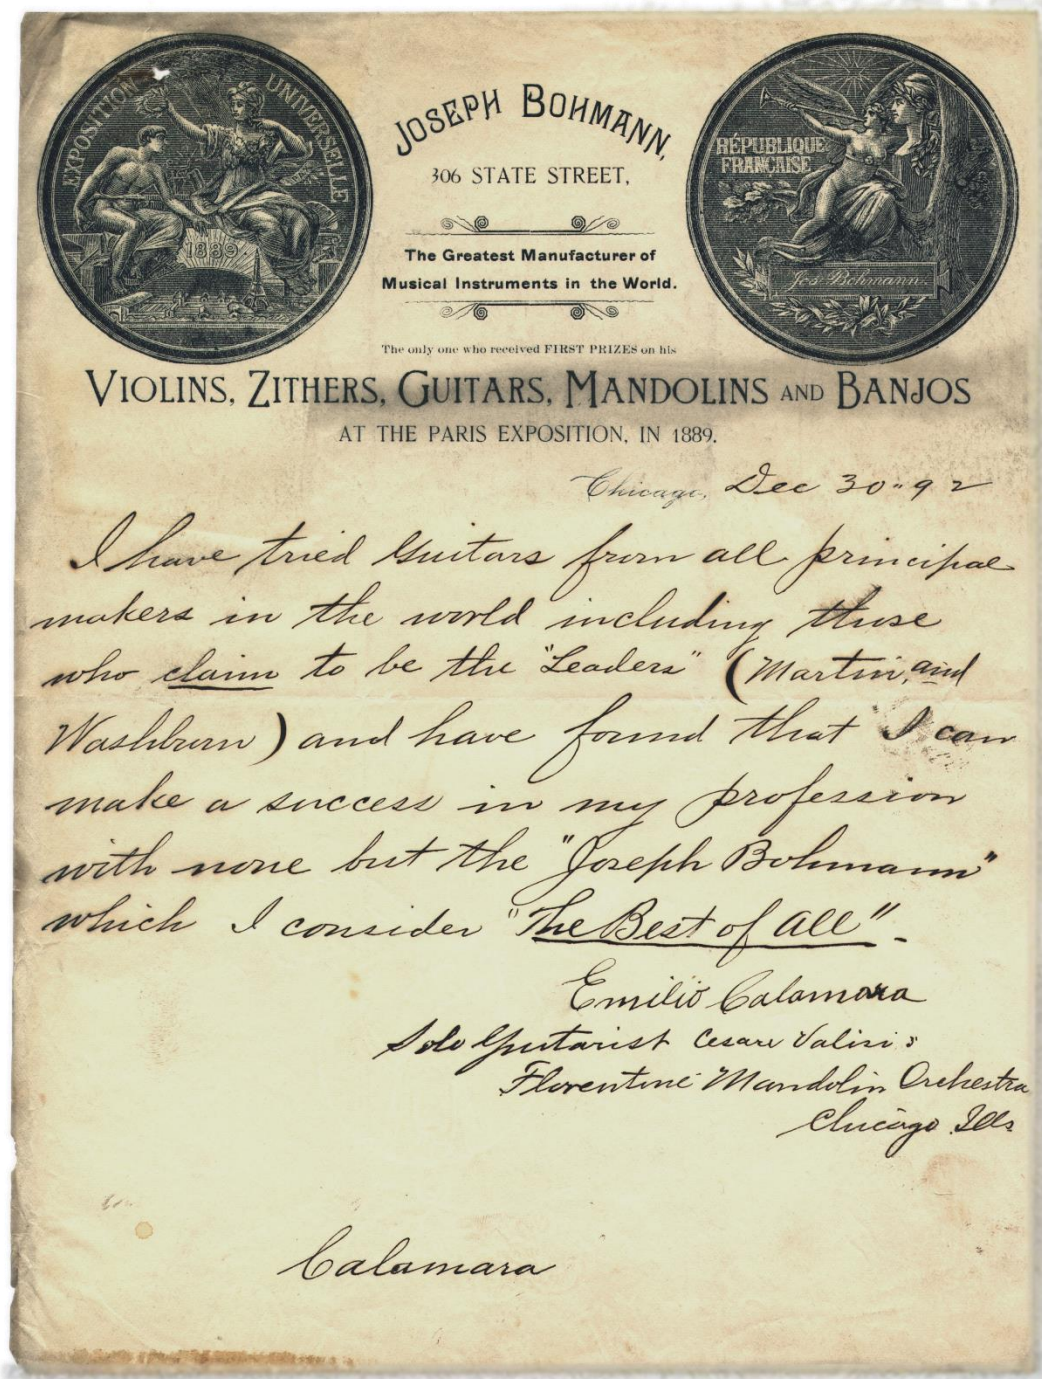 EXPOSITION UNIVERSELLE
1889
JOSEPH BOHMANN,
306 STATE STREET,
The Greatest Manufacturer of
Musical Instruments in the World.
RÉPUBLIQUE
FRANÇAISE
Jos. Bohmann.
The only one who received FIRST PRIZES on his
VIOLINS, ZITHERS, GUITARS, MANDOLINS AND BANJOS
AT THE PARIS EXPOSITION, IN 1889.
Chicago, Dec 30"92
I have tried Guitars from all principal
makers in the world including those
who claim to be the "Leaders" (Martin, and
Washburn) and have found that I can
make a success in my profession
with none but the "Joseph Bohmann"
which I consider "The Best of All".
Emilio Calamara
Solo Guitarist Cesare Valisi's
Florentine Mandolin Orchestra
Chicago Ills
Calamara